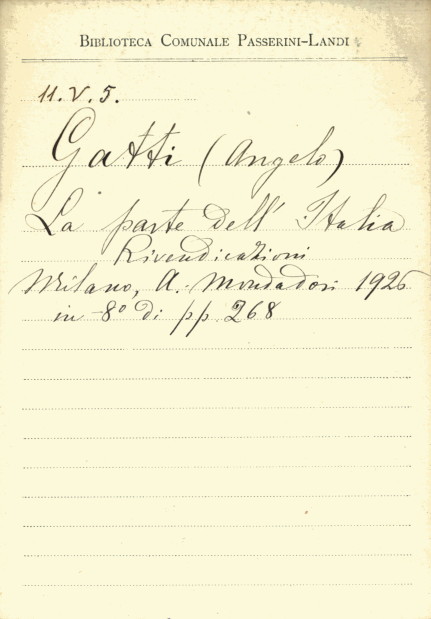 BIBLIOTECA COMUNALE PASSERINI-LANDI
11. V. 5.
Gatti (Angelo)
La parte dell' Italia
Rivendicazioni
Milano, A. Mondadori 1926
in -8º di pp. 268